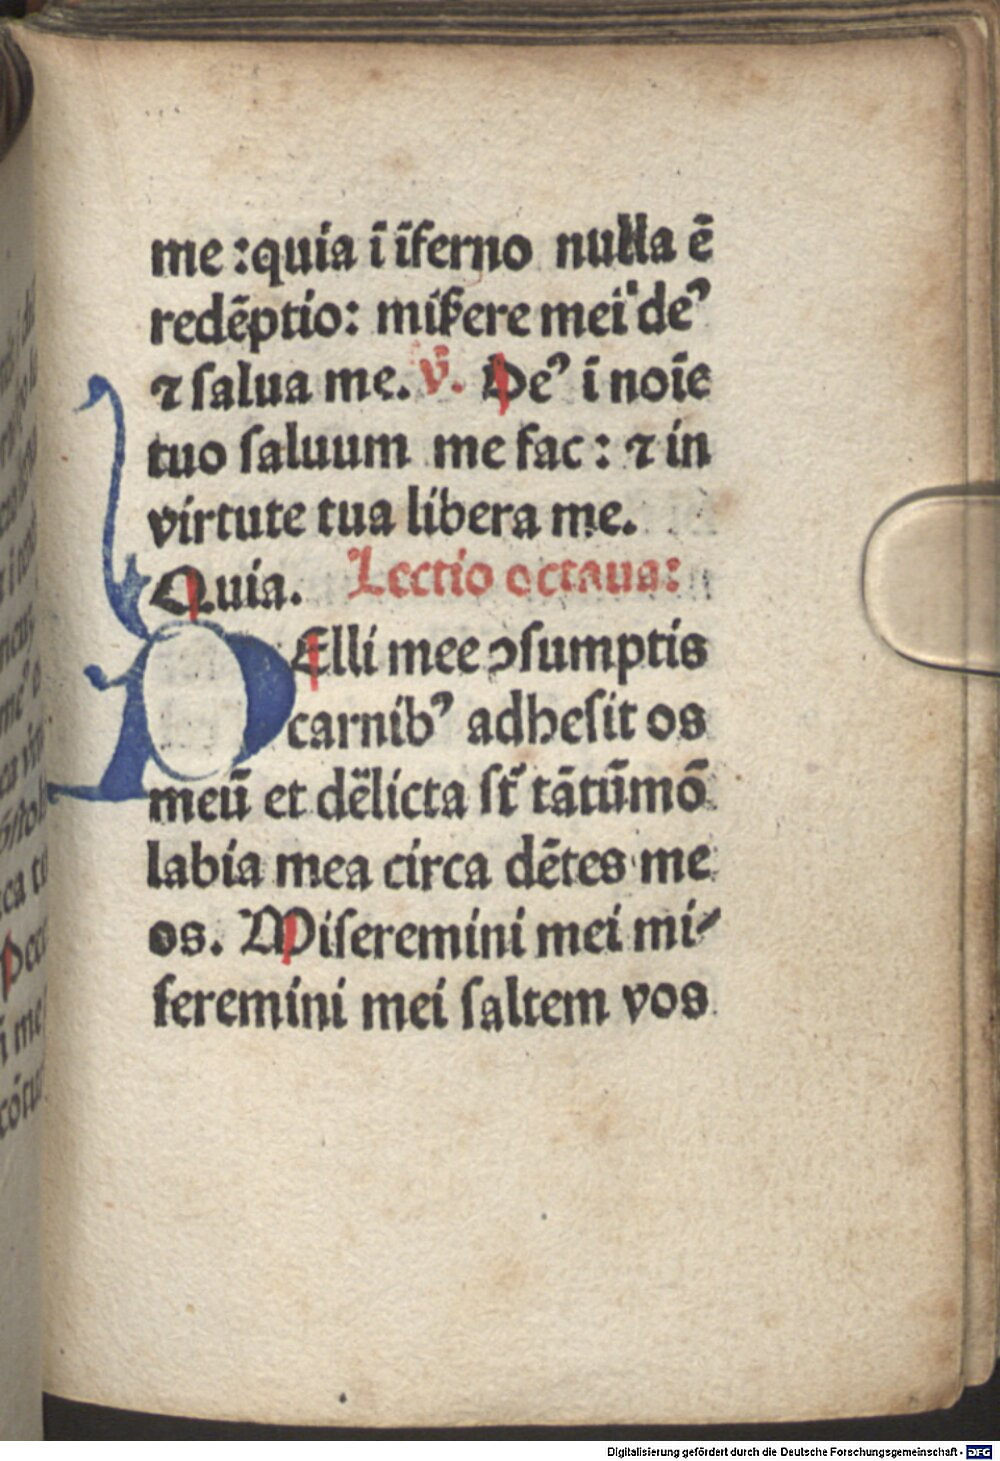 me :quia ī īferno nulla ē
redēptio: miẜere mei de⁹
⁊ ſalua me. v̄. De⁹ i noīe
tuo ſaluum me fac : ⁊ in
virtute tua libera me.
Quia. Lectio octaua:
PElli mee ↄſumptis
carnib⁹ adheſit os
meū et dēlicta ſt̄ tātūmō
labia mea circa dētes me
os. Miſeremini mei mi⸗
ſeremini mei ſaltem vos
Digitalisierung gefördert durch die Deutsche Forschungsgemeinschaft - DFG